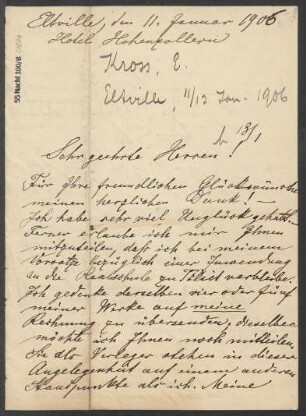 Eltville, den 11. Januar 1906
Hotel Hohenzollern
Kross, E.
Eltville, 11/13 Jan. 1906
55 Nachl 100/B
b 13/1
Sehr geehrte Herren!
Für Ihre freundlichen Glückwünsche
meinen herzlichen Dank! –
Ich habe sehr viel Unglück gehabt.
Ferner erlaube ich mir Ihnen
mitzuteilen, daß ich bei meinem
Vorsatz bezüglich einer Zuwendung
an die Realschule zu Tilsit verbleibe.
Ich gedenke derselben vier oder fünf
meiner Werke auf meine
Rechnung zu übersenden, dieselben
möchte ich Ihnen noch mitteilen.
Sie als Verleger stehen in dieser
Angelegenheit auf einem anderen
Standpunkte als ich. Meine